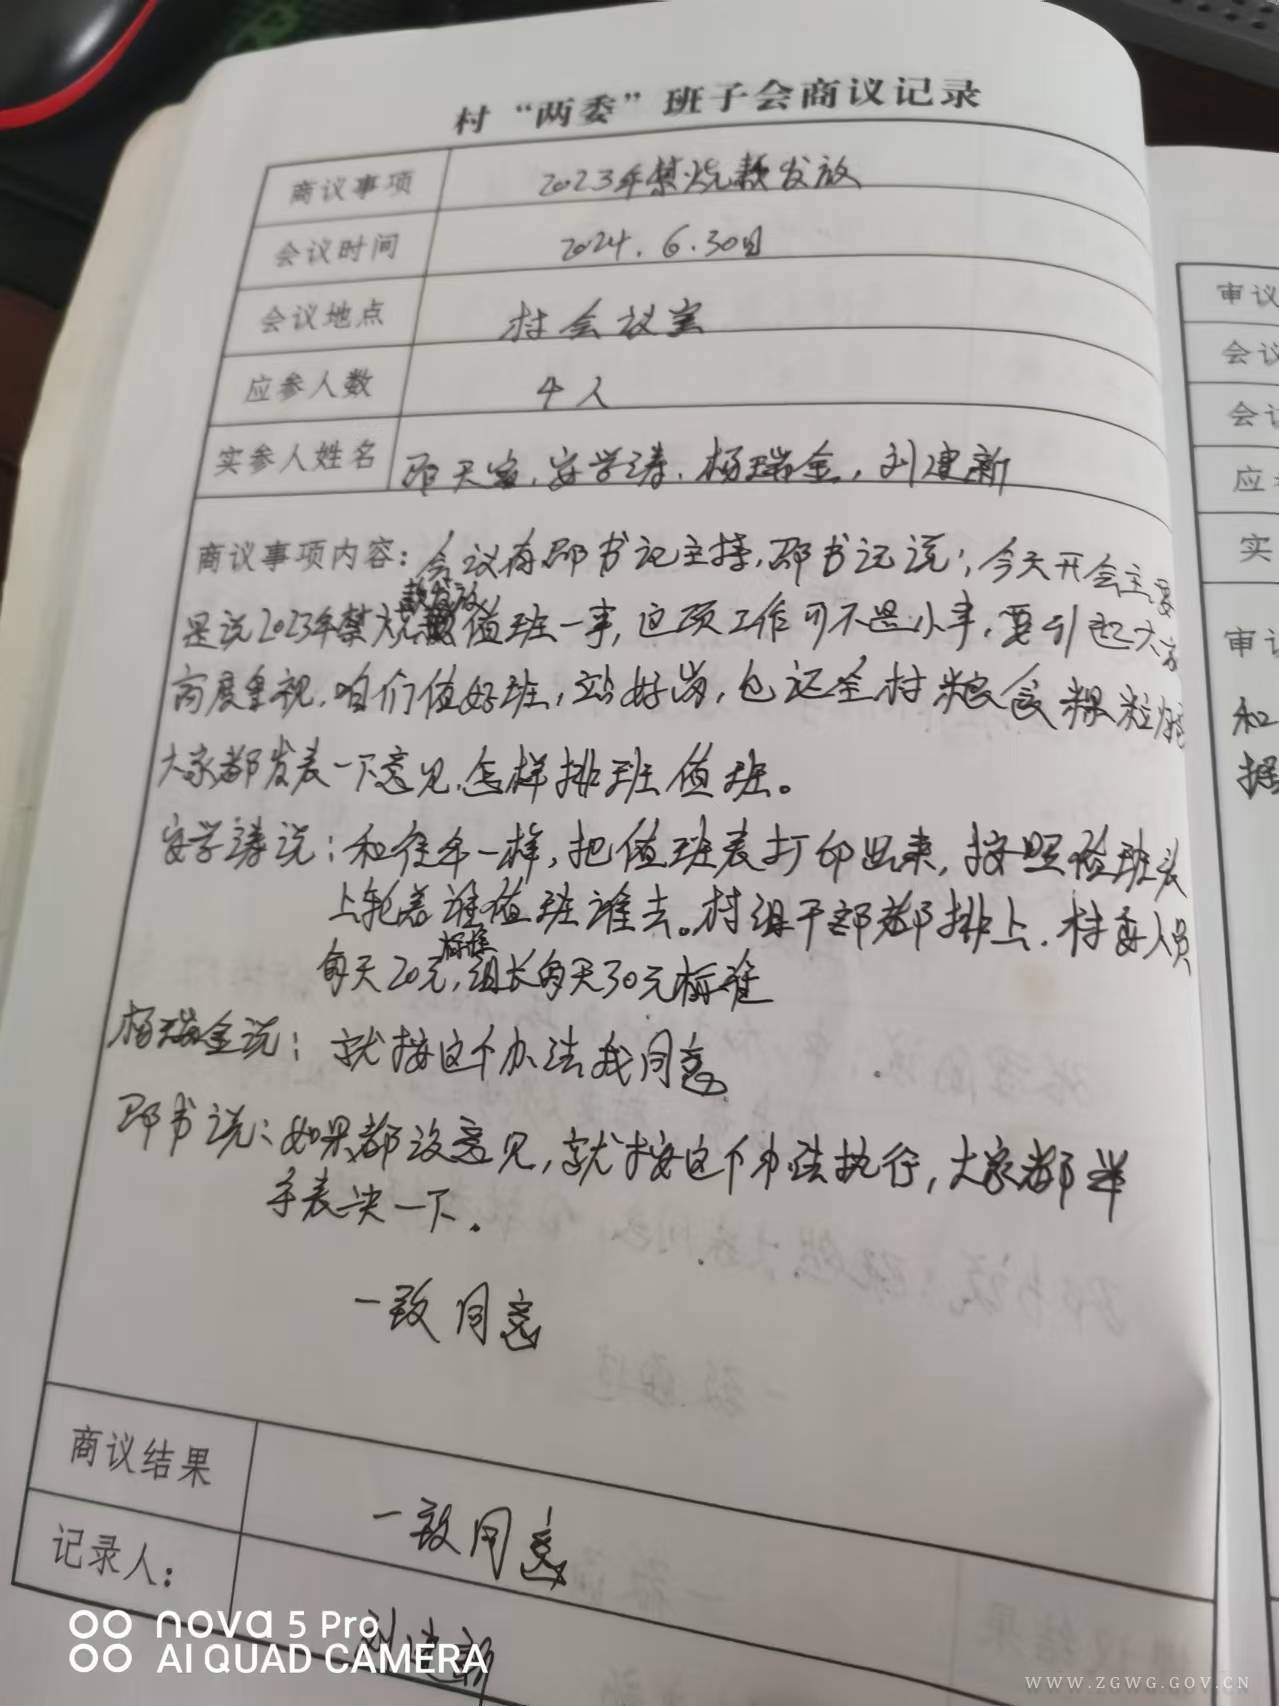 村“两委”班子会商议记录
商议事项 2023年禁烧款发放
会议时间 2024.6.30日
会议地点 村会议室
应参人数 4人
实参人姓名 邵天 安学涛、杨瑞金,刘建新
商议事项内容:会议有邵书记主持,邵书记说;今天开会主要
款发放
是说2023年禁烧 值班一事,这项工作可不是小事,要引起大家
高度重视,咱们值好班,站好岗, 全村粮食颗粒
大家都发表一下意见,怎样排班值班。
安学涛说:和往年一样,把值班表打印出来,按照值班表
上轮着谁值班谁去。村组干部都排上,村委人员
标准
每天20元,组长每天30元标准
杨瑞金说:就按这个办法我同意
邵书说:如果都没意见,就按这个办法执行,大家都举
手表决一下.
一致同意
商议结果 一致同意
记录人: 刘建新
nova 5 Pro
AI QUAD CAMERA
WWW.ZGWG.GOV.CN
审议
会议
会议
应
实
审议
和
据